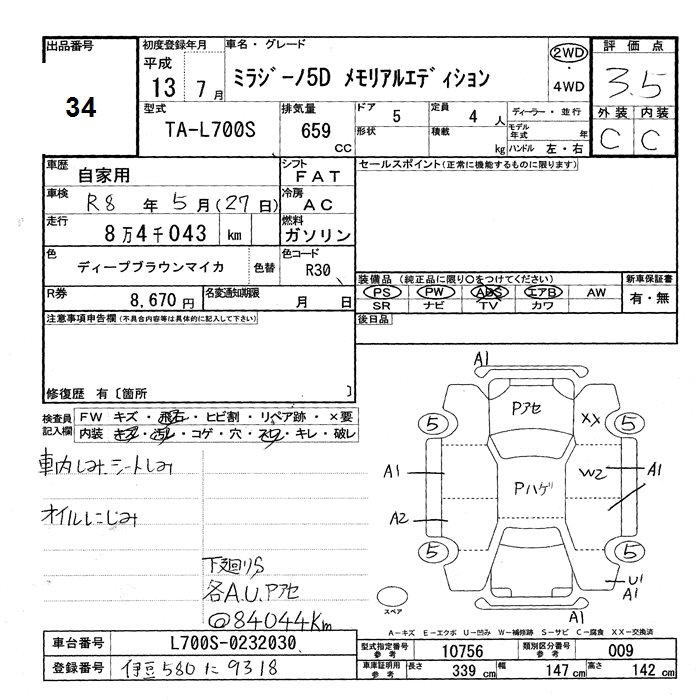 出品番号
34
初度登録年月
平成
13 7月
車名・グレード
ミラジーノ5D メモリアルエディション
2WD
・
4WD
評価点
3.5
外装 内装
C C
型式
TA-L700S
排気量
659
CC
ドア 5
形状
定員 4 人
積載 kg
ディーラー・並行
モデル年式 年
ハンドル 左・右
車歴 自家用
シフト FAT
車検 R8 年 5 月 (27 日)
冷房 AC
走行 8万4千043 km
燃料 ガソリン
色 ディープブラウンマイカ 色替
色コード R30
R券 8,670 円
名変通知期限 月 日
セールスポイント(正常に機能するものに限ります)
装備品 (純正品に限り○をつけてください)
PS PW ABS エアB AW
SR ナビ TV カワ
新車保証書
有・無
後日品
注意事項申告欄 (不具合内容等は具体的に記入して下さい)
修復歴 有〔箇所 〕
検査員記入欄
FW キズ・飛石・ヒビ割・リペア跡・×要
内装 キズ・汚レ・コゲ・穴・スレ・キレ・破レ
車内しみ、シートしみ
オイルにじみ
下廻りS
各A.U.Pアセ
@84044Km
A1
Pアセ
XX
5 5
A1 Pハゲ W2 A1
A2
5 5
U1
A1
A1
スペア
A-キズ E-エクボ U-凹み W-補修跡 S-サビ C-腐食 XX-交換済
車台番号 L700S-0232030
登録番号 伊豆580に9318
型式指定番号 参考 10756
類別区分番号 参考 009
車庫証明用 参考 長さ 339 cm 幅 147 cm 高さ 142 cm